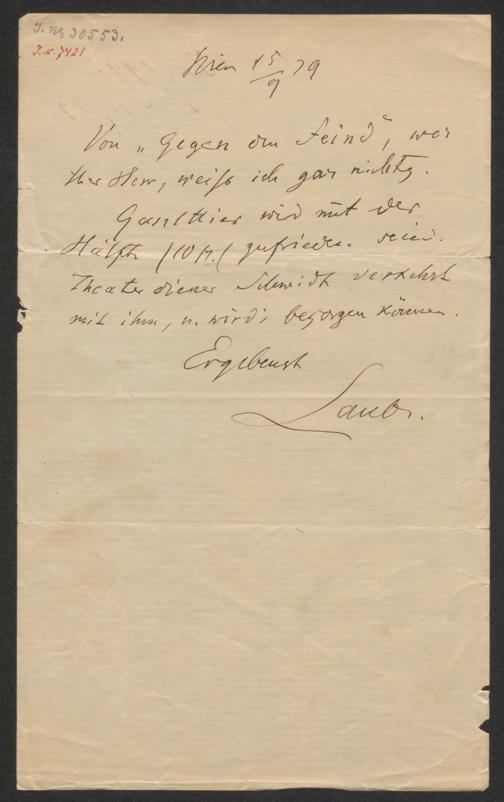 J. No 30553.
J.N. 7421
Wien 15/9 79
Von „Gegen den Feind”, wer
Herr, weiß ich gar nichts.
wird mit der
Hälfte (10 fl.) zufrieden sein.
Theaterdiener Schmidt verkehrt
mit ihm, u. wird's besorgen können.
Ergebenst
Laube.